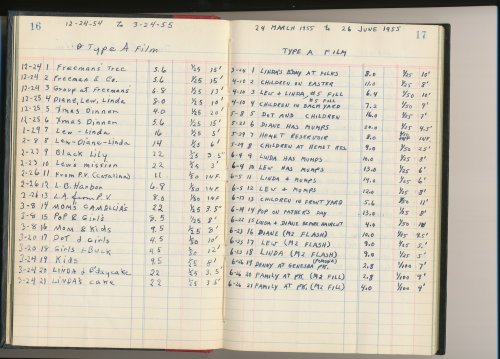 16
12-24-54 to 3-24-55
Type A Film
12-24 1 Freemans' Tree 5.6 1/25 15'
12-24 2 Freeman & Co. 5.6 1/25 15'
12-24 3 Group at Freemans' 6.8 1/25 13'
12-25 4 Diane, Lew, Linda 8.0 1/25 10'
12-25 5 Xmas Dinner 4.0 1/25 20'
12-25 6 Xmas Dinner 5.6 1/25 15'
1-29 7 Lew - Linda 16 1/25 5'
2-8 8 Lew-Diane-Linda 14 1/25 6'
2-23 9 Black Lily 22 1/25 3.5'
2-23 10 Lew's mission 22 1/25 3'
2-26 11 From P.V. (Catalina) 11 1/50 INF.
2-26 12 L.B. Harbor 6.8 1/50 INF.
2-26 13 L.A. from P.V. 8.0 1/50 INF.
3-8 14 Mom's Camellias 22 1/25 3.5'
3-8 15 Pop & Girls 8.5 1/25 8'
3-8 16 Mom & Kids 9.5 8'
3-20 17 Dot & Girls 4.5 1/50 10'
3-20 18 Girls & Buick 4.5 12'
3-24 19 Kids 4.5 8'
3-24 20 Linda & B'day cake 22 1/25 3.5'
3-24 21 Linda's cake 22 1/25 3.5'
24 March 1955 to 26 June 1955
17
Type A Film
3-24 1 Linda's B'day at Folks 8.0 1/25 10'
4-10 2 Children on Easter 11.0 1/25 8'
4-10 3 Lew & Linda, #5 Fill 6.4 1/50 10'
#5 Fill
4-10 4 Children in Back Yard 7.2 1/50 9'
5-8 5 Dot and Children 16.0 1/25 7'
5-21 6 Diane has Mumps 10.0 1/25 4.5'
5-29 7 Hemet Reservoir 8.0 INF
5-29 8 Children at Hemet Res. 9.0 1/50 25'
6-4 9 Linda has Mumps 10.0 1/25 8'
6-4 10 Lew has Mumps 13.0 1/25 6'
6-5 11 Linda & Mumps 14.0 1/25 6'
6-5 12 Lew & Mumps 12.0 1/25 8'
6-17 13 Children in Front Yard 5.6 1/50 11'
6-19 14 Pop on Father's Day 13.0 1/25 8'
6-22 15 Linda & Diane before haircut 4.0 1/50 10'
6-23 16 Diane (M2 Flash) 10.0 1/25 4.5'
6-25 17 Lew (M2 Flash) 9.0 1/25 5'
6-25 18 Linda (M2 Flash) 9.0 1/25 5'
6-26 19 Denny at Genesha Pk. (Pomona) 2.8 1/100 7'
6-26 20 Family at Pk. (M2 Fill) 2.8 1/100 9'
6-26 21 Family at Pk. (M2 Fill) 4.0 1/100 9'